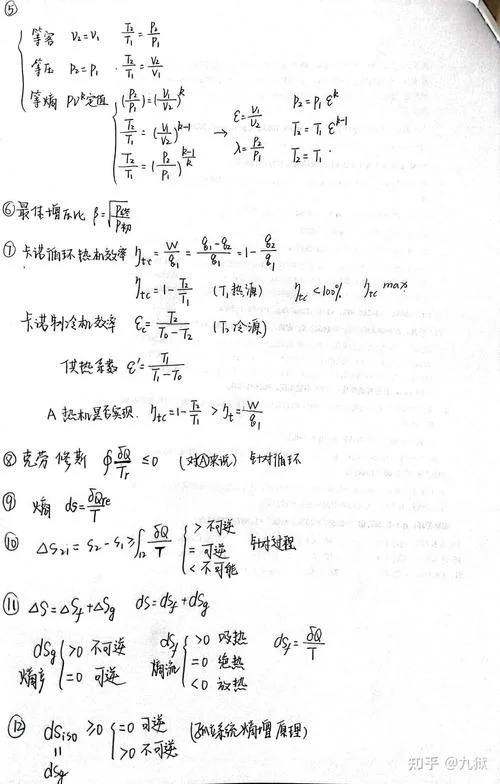 ⑤
等容 V₂=V₁ T₂/T₁=P₂/P₁
等压 P₂=P₁ . T₂/T₁=V₂/V₁
等熵 PVᵏ定值 (P₂/P₁)=(V₁/V₂)ᵏ
T₂/T₁=(V₁/V₂)ᵏ⁻¹ → ε=V₁/V₂ P₂=P₁εᵏ
λ=P₂/P₁ T₂=T₁εᵏ⁻¹
T₂/T₁=(P₂/P₁)^((k-1)/k) T₂=T₁·
⑥最佳增压比 β=√(P终/P初)
⑦卡诺循环热机效率 ηtc=W/q₁=(q₁-q₂)/q₁=1-q₂/q₁
ηtc=1-T₂/T₁ (T₁热源) ηtc<100% ηtc max
卡诺制冷机效率 εc=T₂/(T₀-T₂) (T₂冷源)
供热系数 ε'=T₁/(T₁-T₀)
A 热机是否实现. ηtc=1-T₂/T₁>ηt=W/q₁
⑧克劳修斯 ∮δQ/Tr≤0 针对循环
⑨ 熵 ds=δQre/T
⑩ ΔS₂₁=S₂-S₁≥∫₁₂δQ/T { >不可逆 =可逆 <不可能 针对过程
⑪ ΔS=ΔSf+ΔSg dS=dSf+dSg
dSg 熵产 { >0 不可逆 =0 可逆 dSf 熵流 { >0 吸热 =0 绝热 <0 放热 dSf=δQ/T
⑫ dSiso≥0 { =0 可逆 >0 不可逆 (孤立系统熵增原理)
॥
dSg
知乎 @九狱